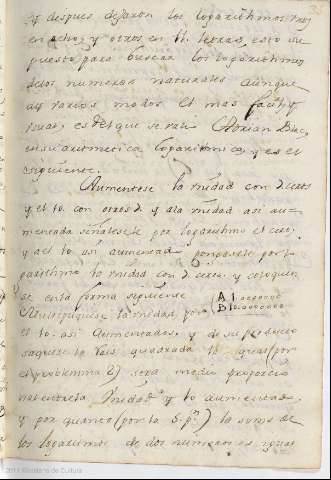 y despues dejaron los logarithmos unos
en ocho, y otros en 11. letras, esto su
puesto para buscar los logarithmos
delos numeros naturales aunque
ay varios modos el mas facil y
usual, es del que se vale Adrian Blac,
en su aritmetica logarithmica, y es el
siguiente.
Aumentese la unidad con 7 ceros
y el 10. con otros 7 y ala unidad asi au
mentada señalesele por logarithmo el cero,
y al 10 asi aumentada pongasele por lo
garithmo la unidad con 7 ceros, y coloquen
se en la forma siguiente
A 1
B 1
Multipliquese la unidad, por
el 10. asi aumentados y de su producto
saquese la raiz quadrada la qual (por
el problemma 2) sera medio proporcio
nal entre la unidad y 10 aumentados,
y por quanto (por la 5. pª) la suma de
los logaritmos de dos numeros es igual
2011 Ministerio de Cultura